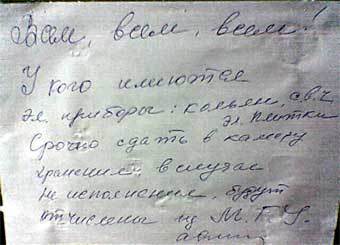 Всем, всем, всем!
У кого имеются
эл. приборы: кальян, с.в.ч.
эл. плитки
Срочно сдать в камеру
хранения, в случае
не исполнения, будут
отчислены из М.Г.У.
админ.